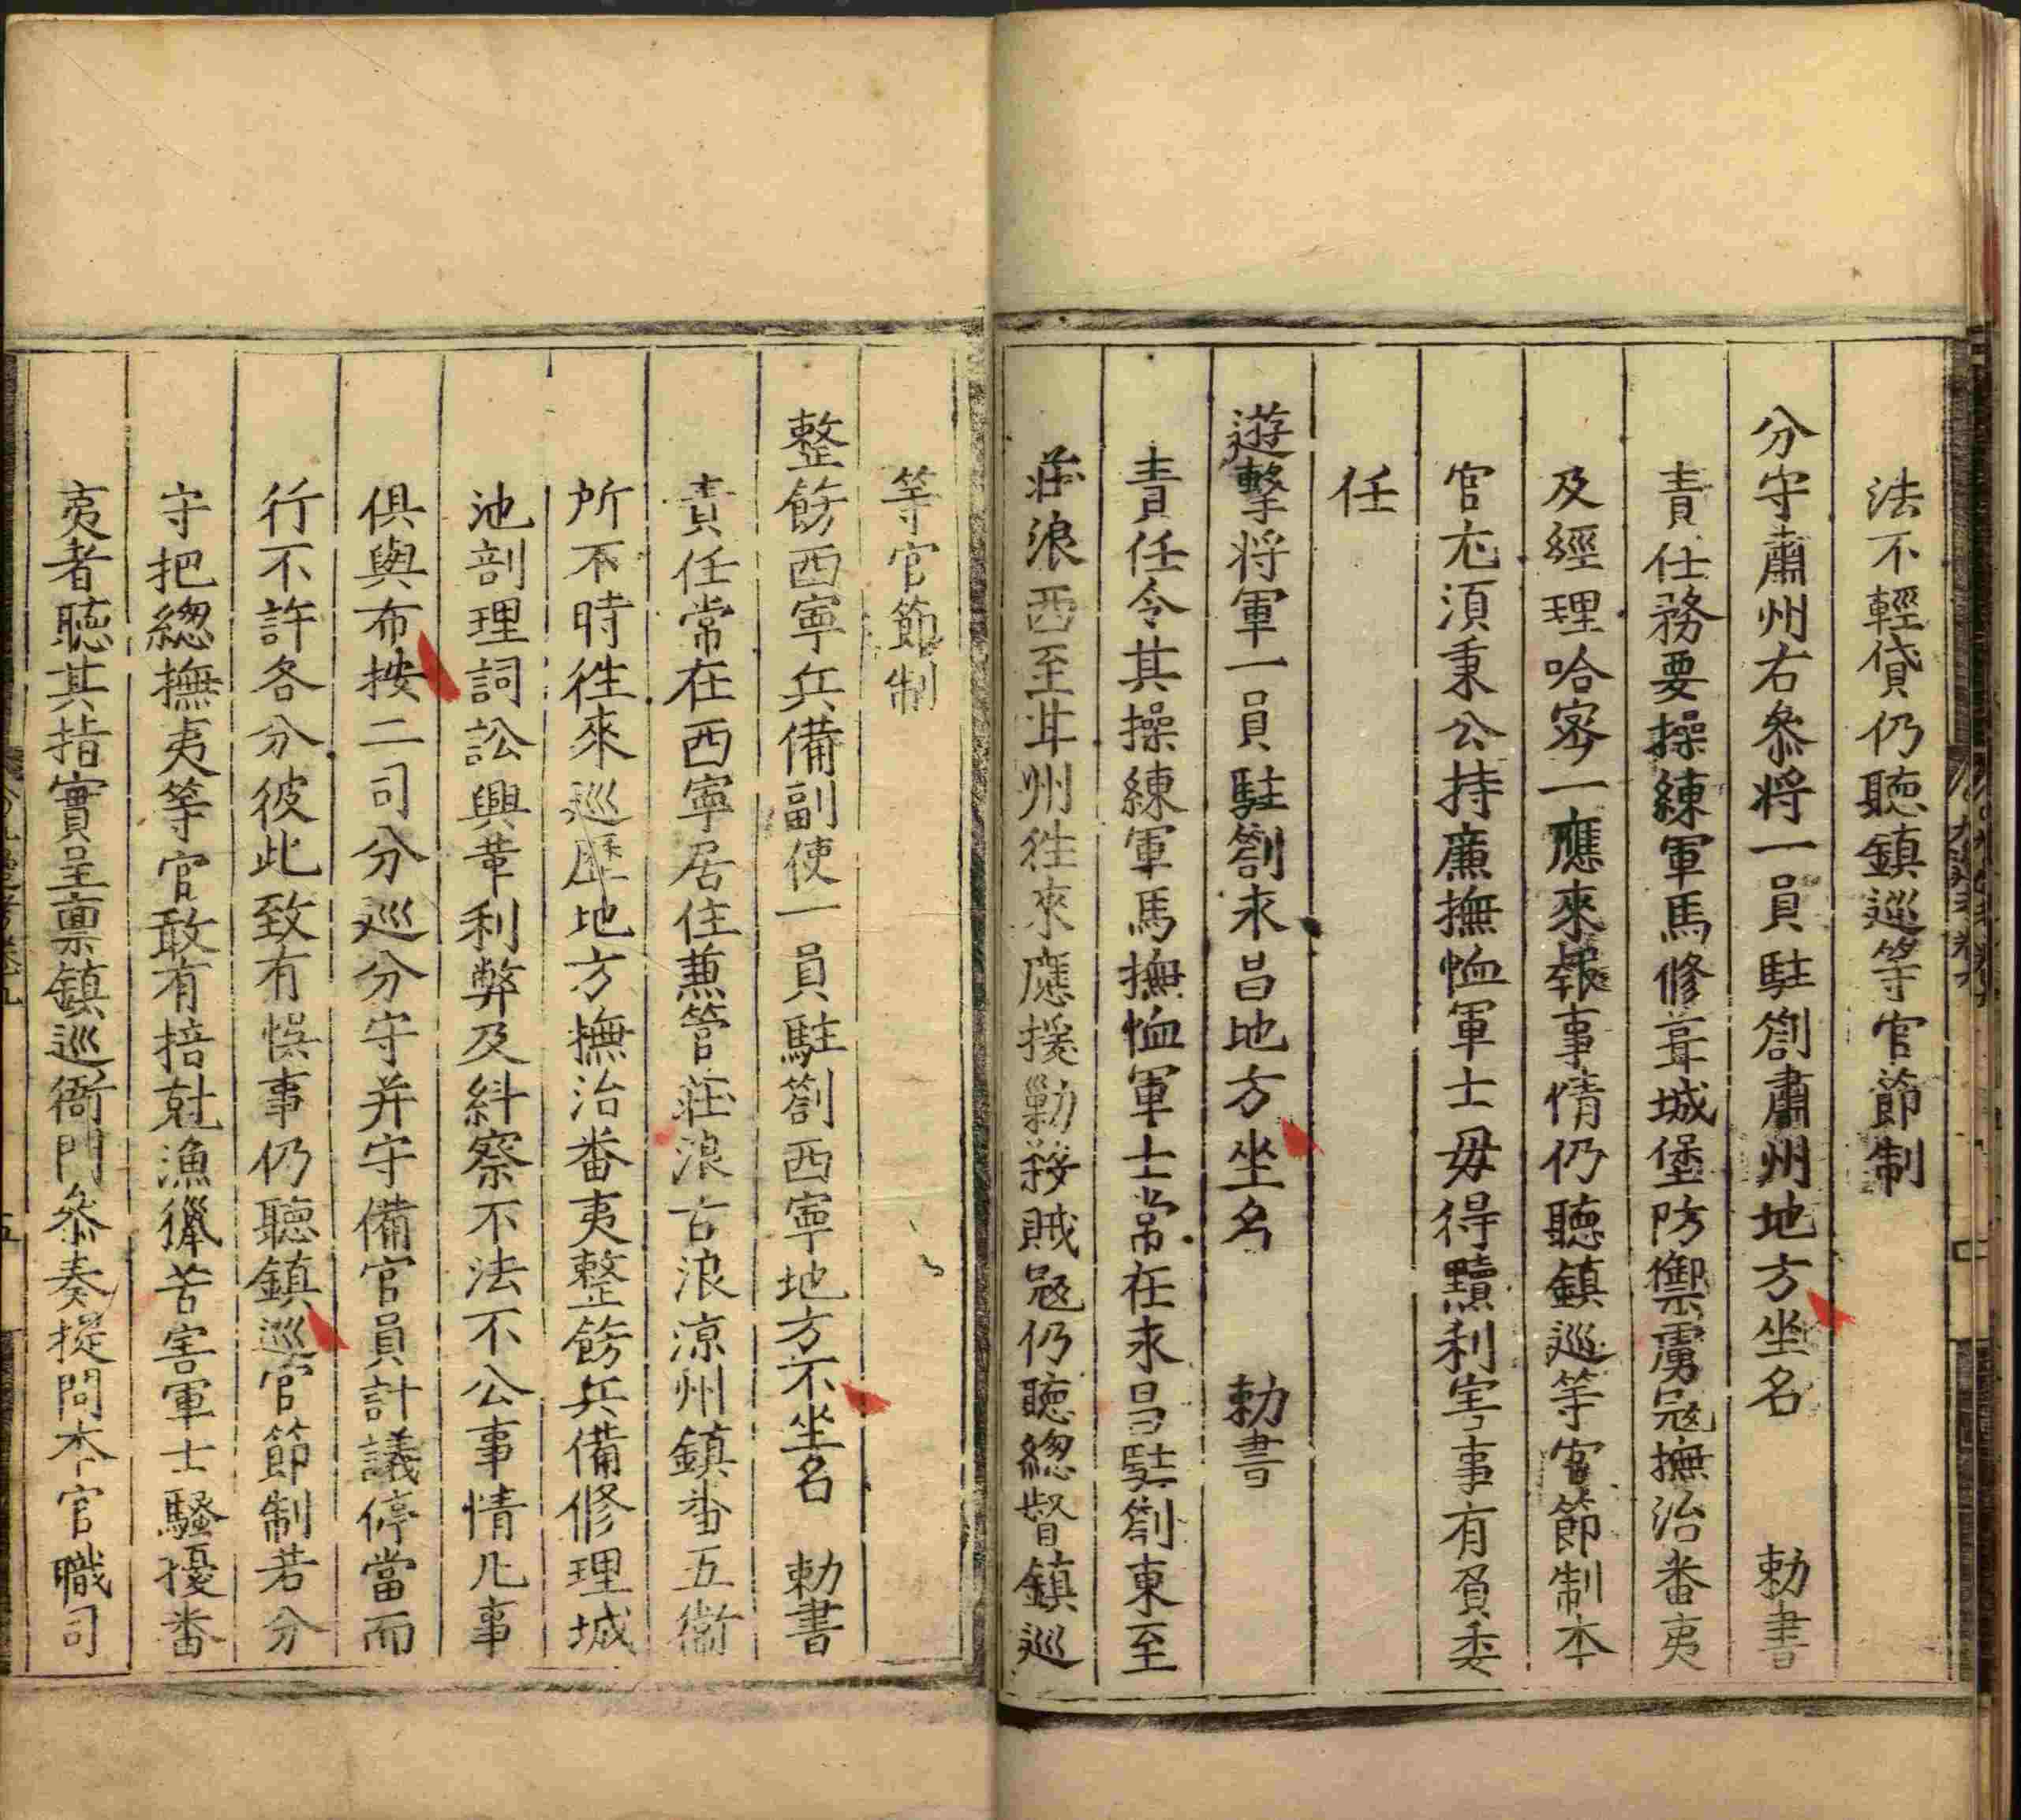 法不輕貸仍聽鎮廵等官節制
分守肅州右叅将一員駐劄肅州地方坐名 勅書
責任務要操練軍馬修葺城堡防禦虜冦撫治畨夷
及經理哈密一應來報事情仍聽鎮廵等官節制本
官尤須秉公持廉撫恤軍士毋得黷利害事有負委
任
遊擊将軍一員駐劄永昌地方坐名 勅書
責任令其操練軍馬撫恤軍士常在永昌駐劄東至
莊浪西至甘州徃來應援勦殺賊冦仍聽總督鎮廵
等官節制
整飭西寧兵備副使一員駐劄西寧地方不坐名 勅書
責任常在西寧居住兼管莊浪古浪涼州鎮畨五衛
所不時徃來廵歷地方撫治番夷整飭兵備修理城
池剖理詞訟興革利弊及糾察不法不公事情凡事
俱與布按二司分廵分守并守備官員計議停當而
行不許各分彼此致有悞事仍聽鎮廵官節制若分
守把總撫夷等官敢有掊尅漁獵苦害軍士騷擾畨
夷者聽其指實呈稟鎮廵衙門叅奏提問本官職司